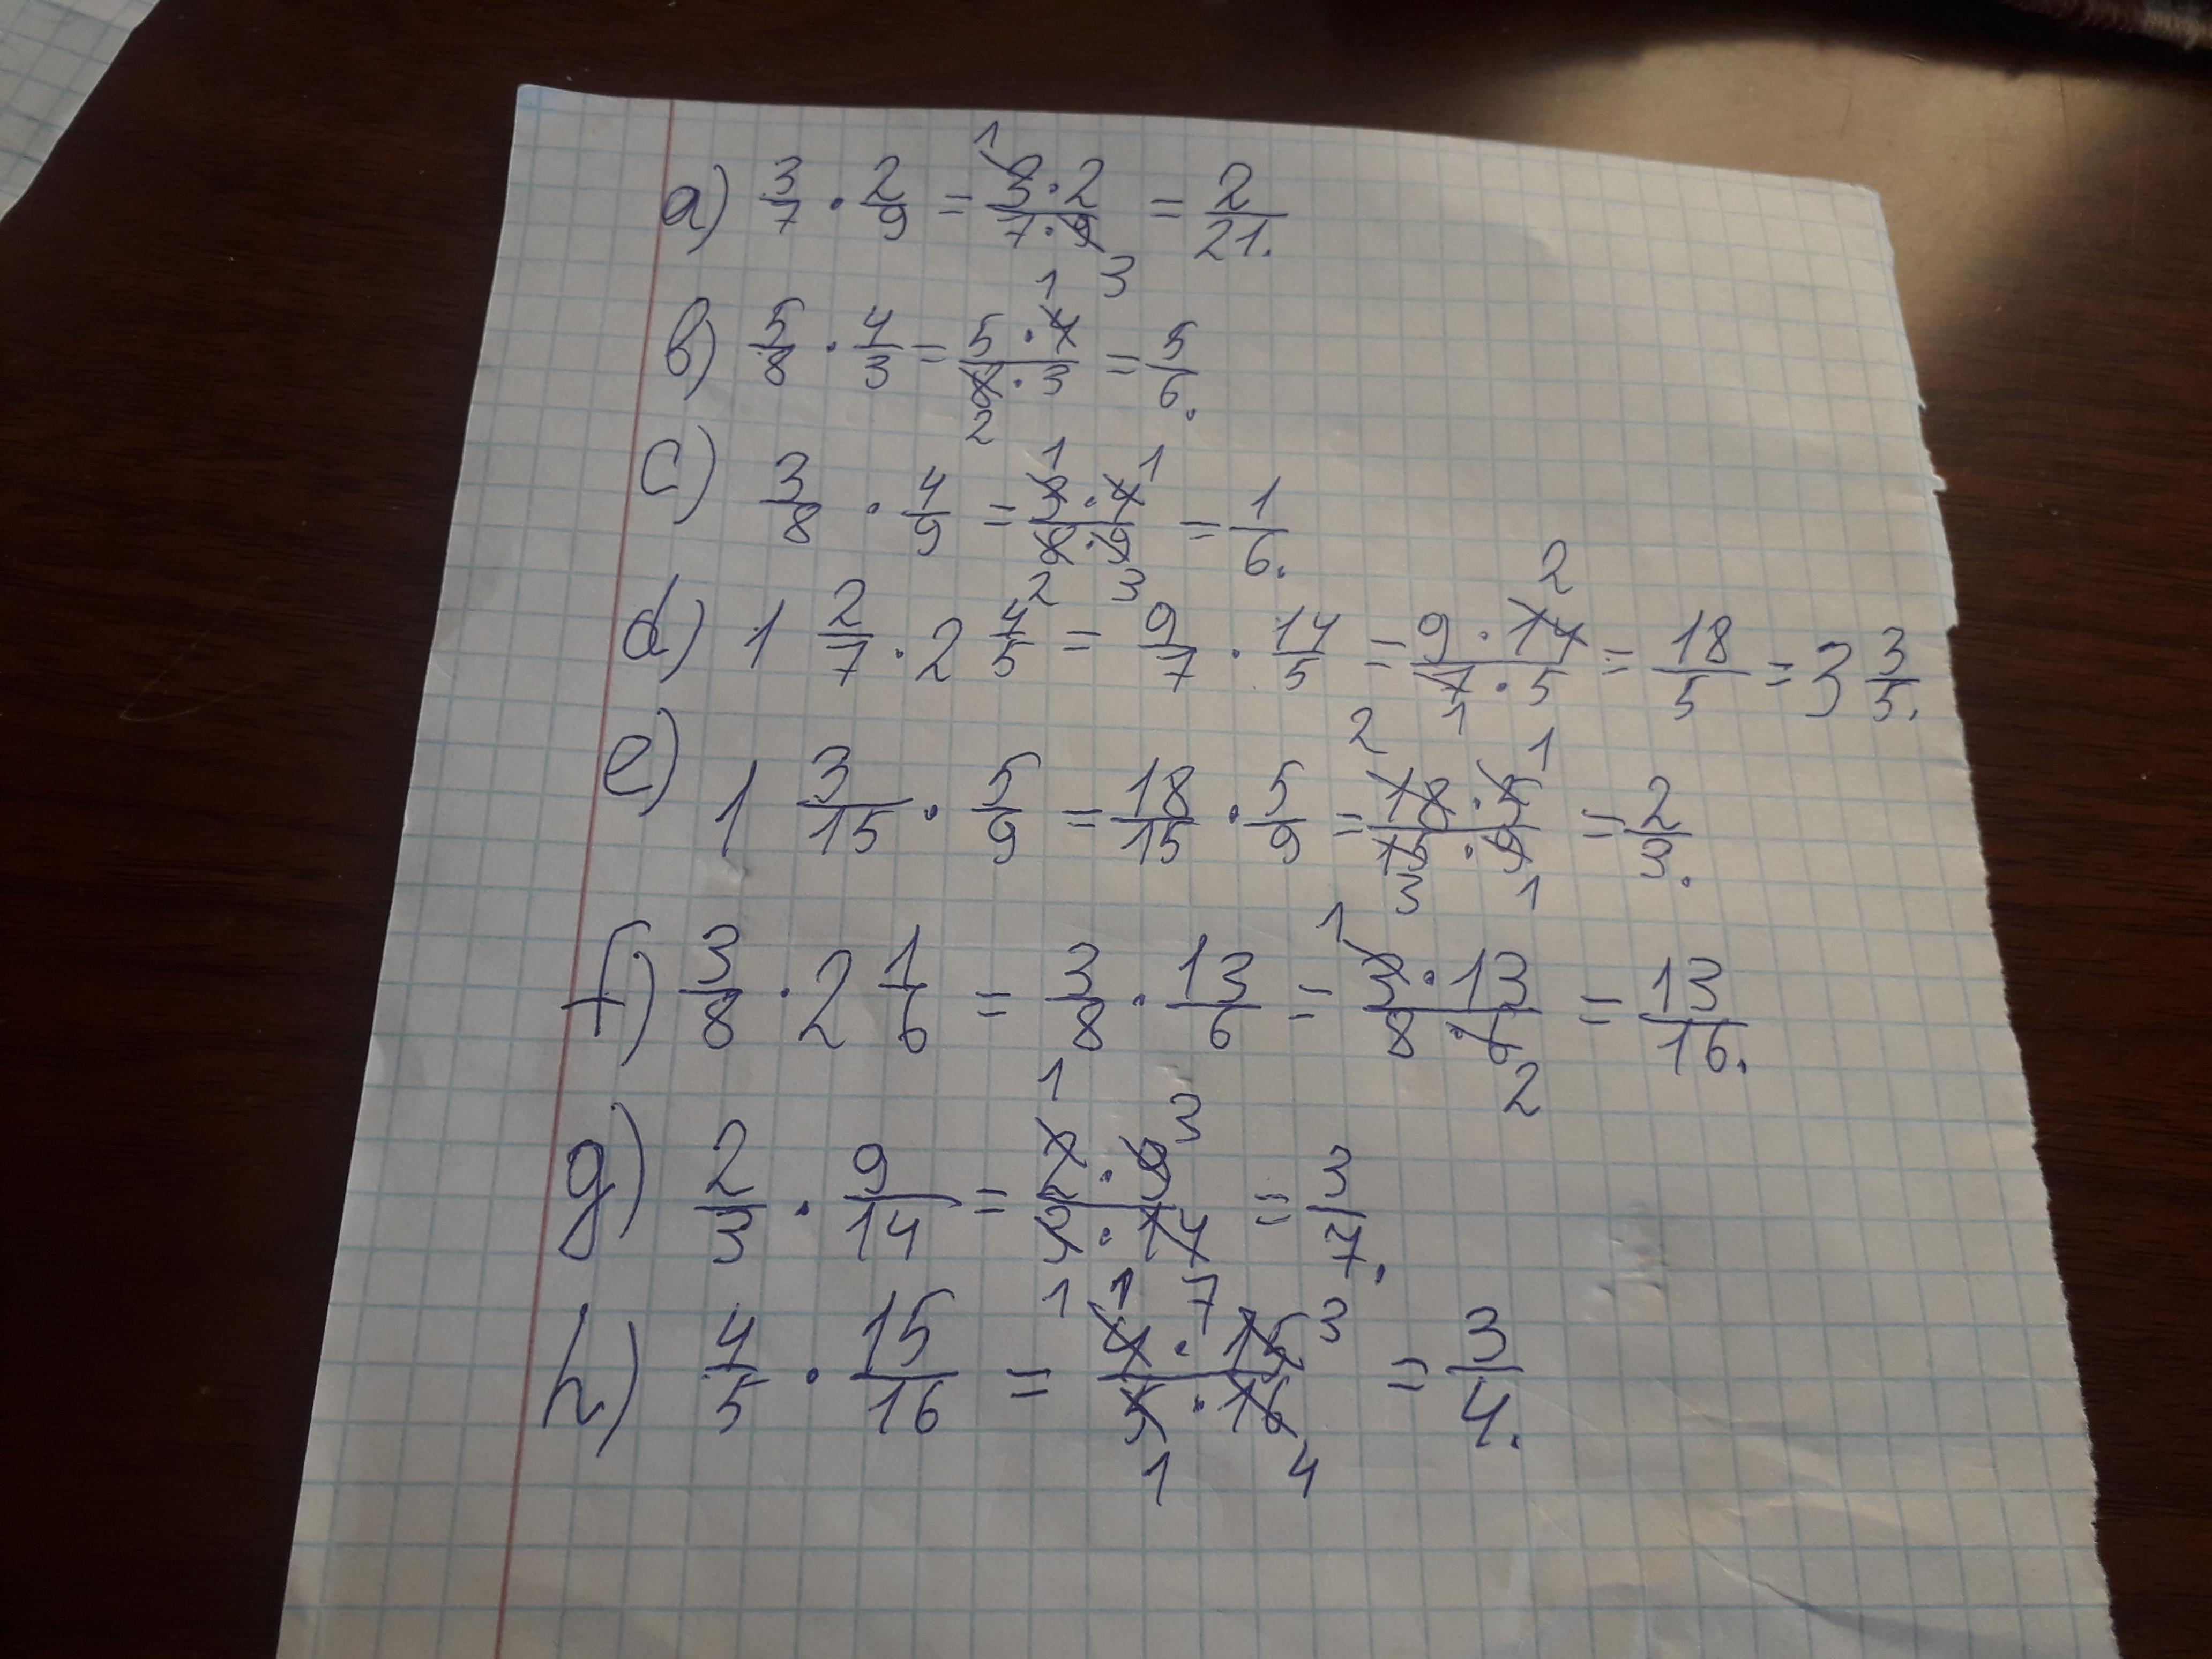 a) 3/7 · 2/9 = 3·2/7·9 = 2/21.
b) 5/8 · 4/3 = 5·4/8·3 = 5/6.
c) 3/8 · 4/9 = 3·4/8·9 = 1/6.
d) 1 2/7 · 2 4/5 = 9/7 · 14/5 = 9·14/7·5 = 18/5 = 3 3/5.
e) 1 3/15 · 5/9 = 18/15 · 5/9 = 18·5/15·9 = 2/3.
f) 3/8 · 2 1/6 = 3/8 · 13/6 = 3·13/8·6 = 13/16.
g) 2/3 · 9/14 = 2·9/3·14 = 3/7.
h) 4/5 · 15/16 = 4·15/5·16 = 3/4.